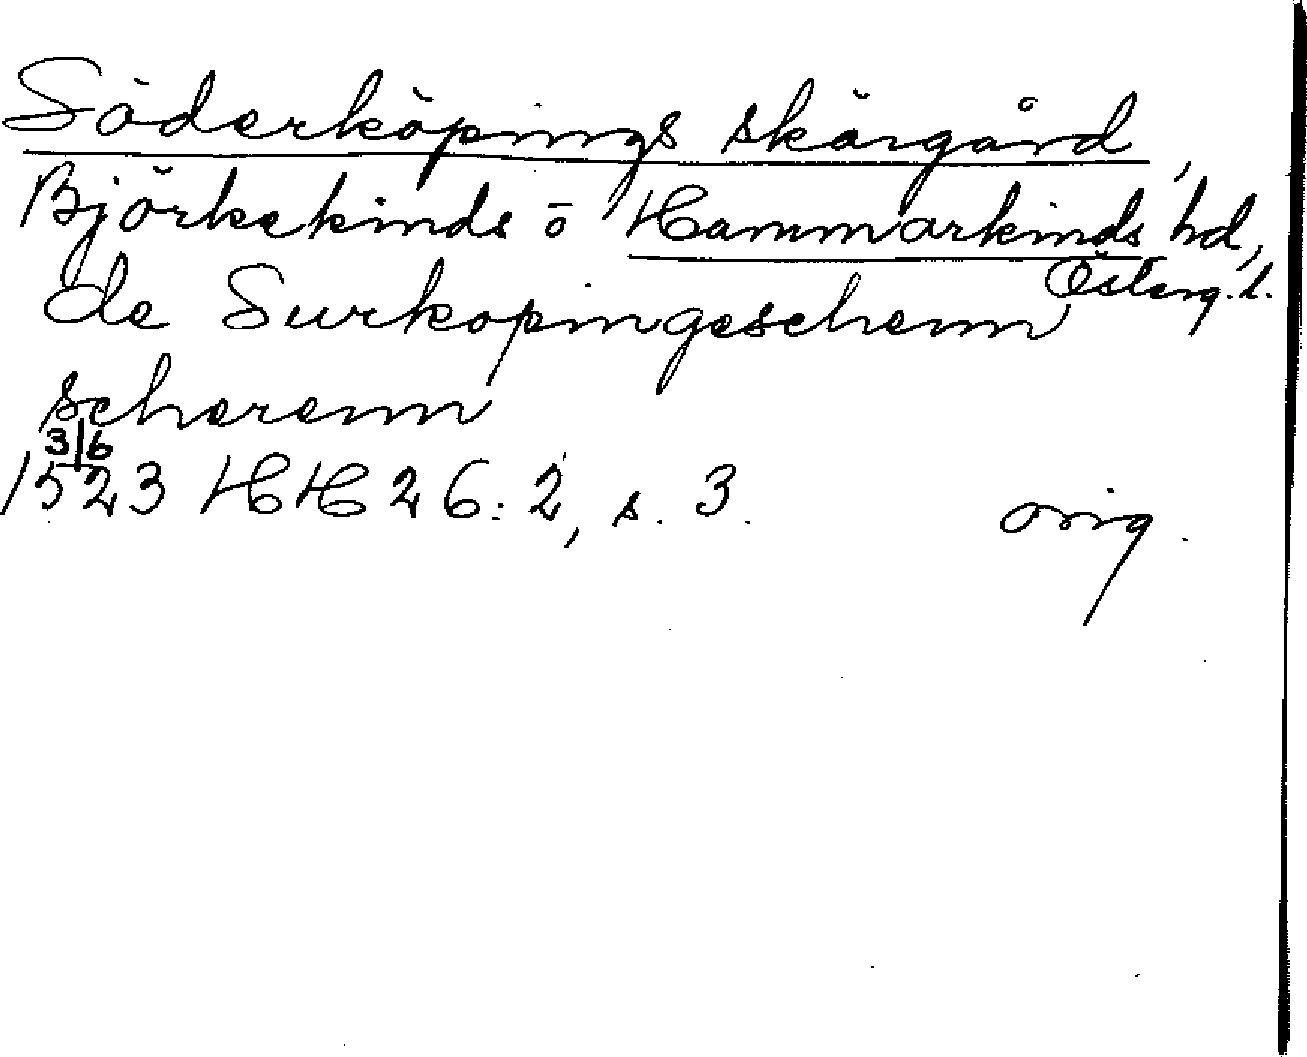 Söderköpings skärgård,
Björkekinds o Hammarkinds hd,
Österg. l.
de Surkopingeschenn
scherenn
3/6
1523 HH 26:2, s. 3.
orig.